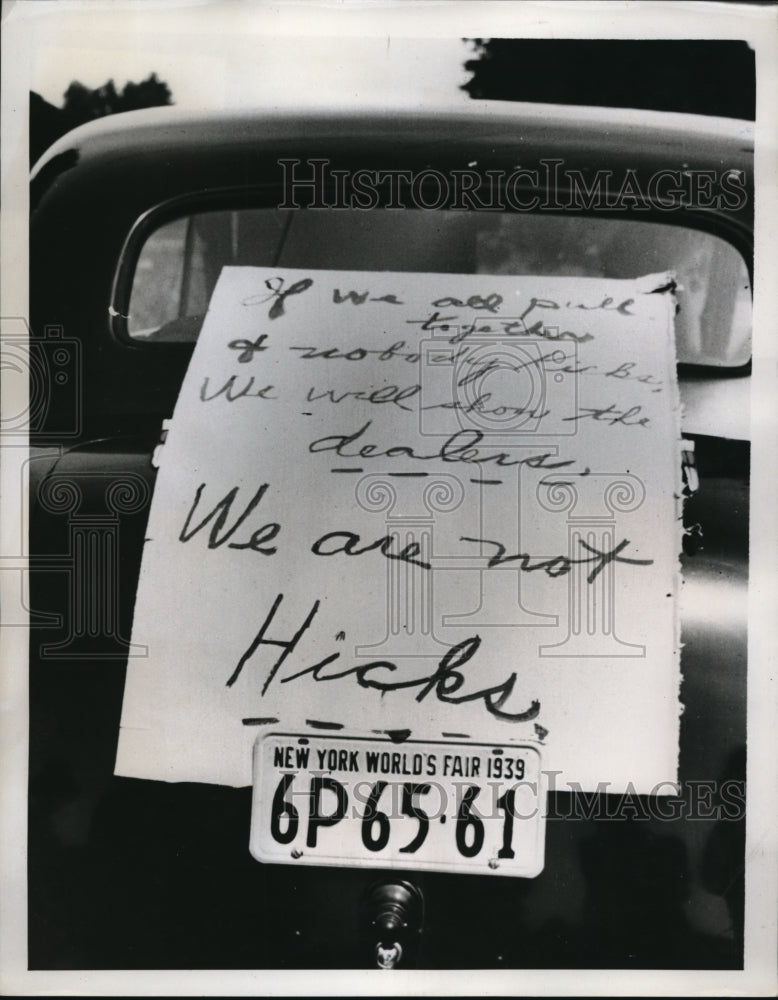 HISTORIC IMAGES
If we all pull
together
& nobody kicks,
We will show the
dealers.
We are not
Hicks.
NEW YORK WORLD'S FAIR 1939
6P65·61
HISTORIC IMAGES